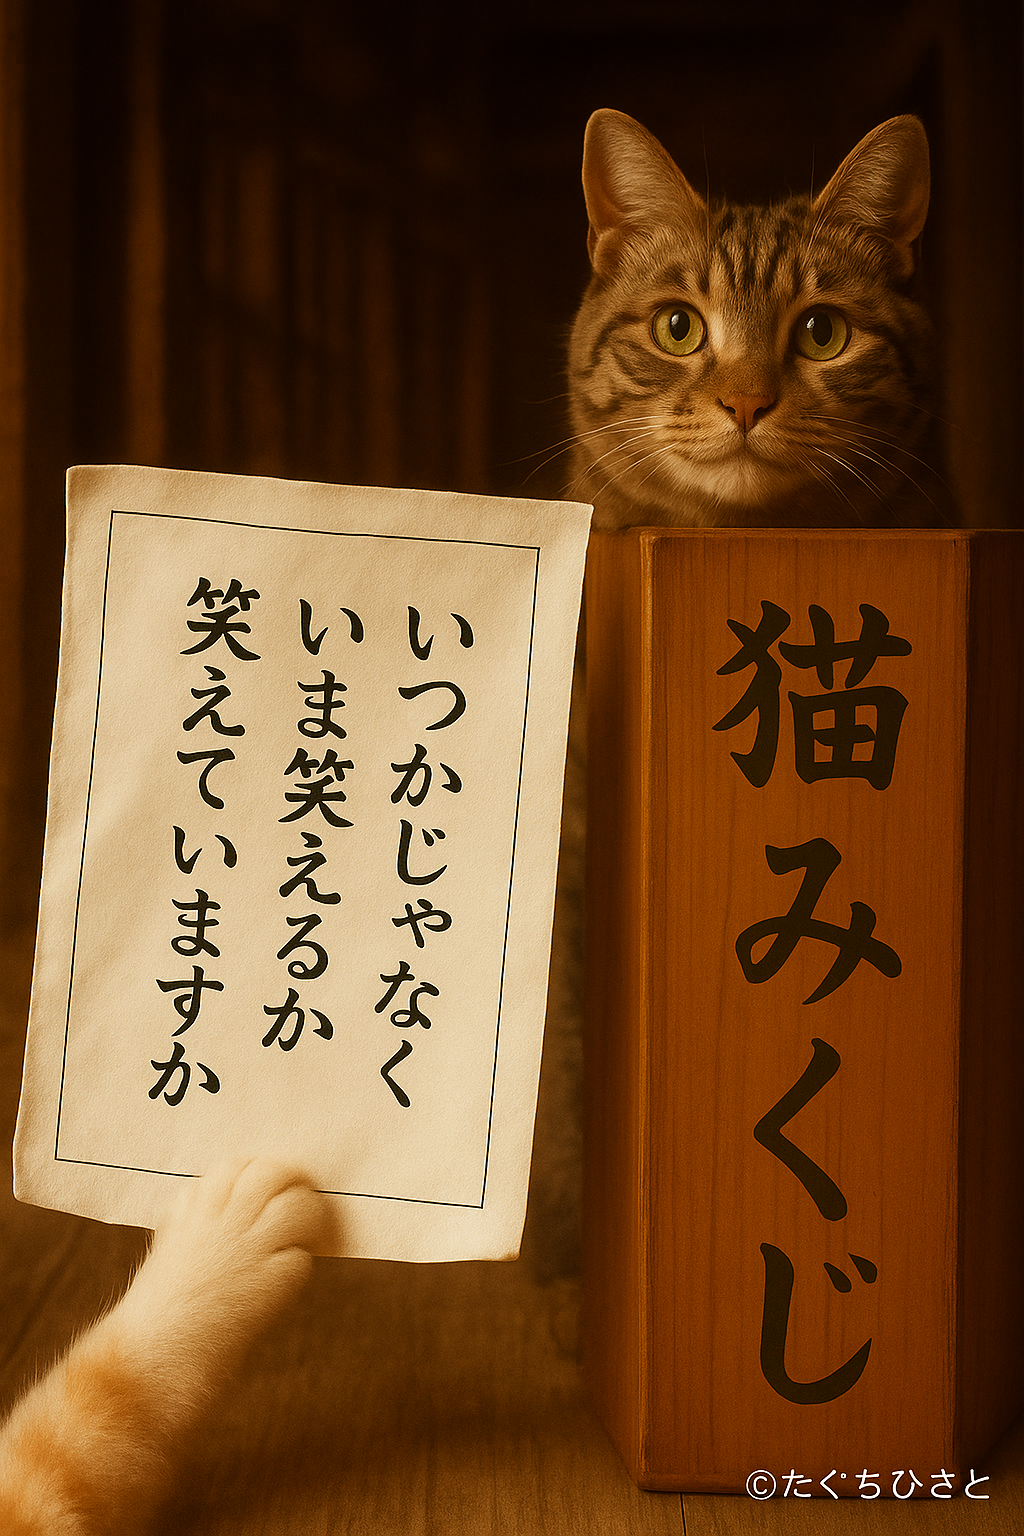 いつかじゃなく
いま笑えるか
笑えていますか
猫みくじ
©たぐちひさと